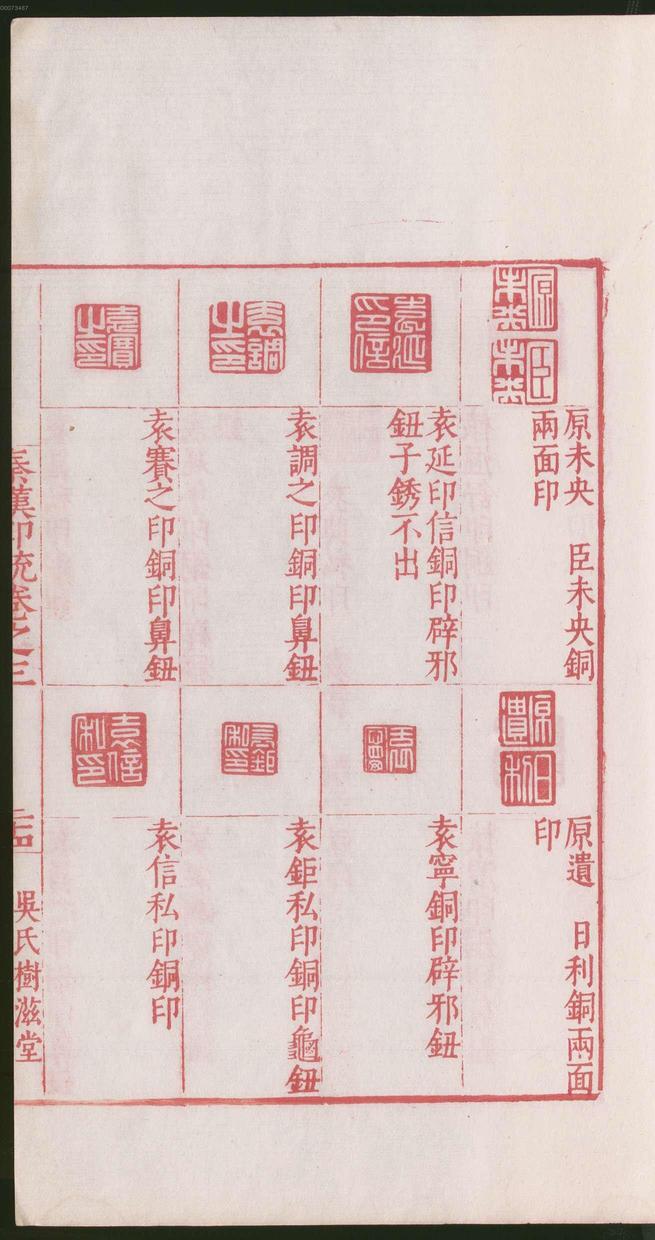 00073467
原未央　臣未央銅
兩面印
袁延印信銅印辟邪
鈕子銹不出
袁調之印銅印鼻鈕
袁賽之印銅印鼻鈕
原遺　日利銅兩面
印
袁寧銅印辟邪鈕
袁鉅私印銅印龜鈕
袁信私印銅印
秦漢印統卷之三
吳氏樹滋堂